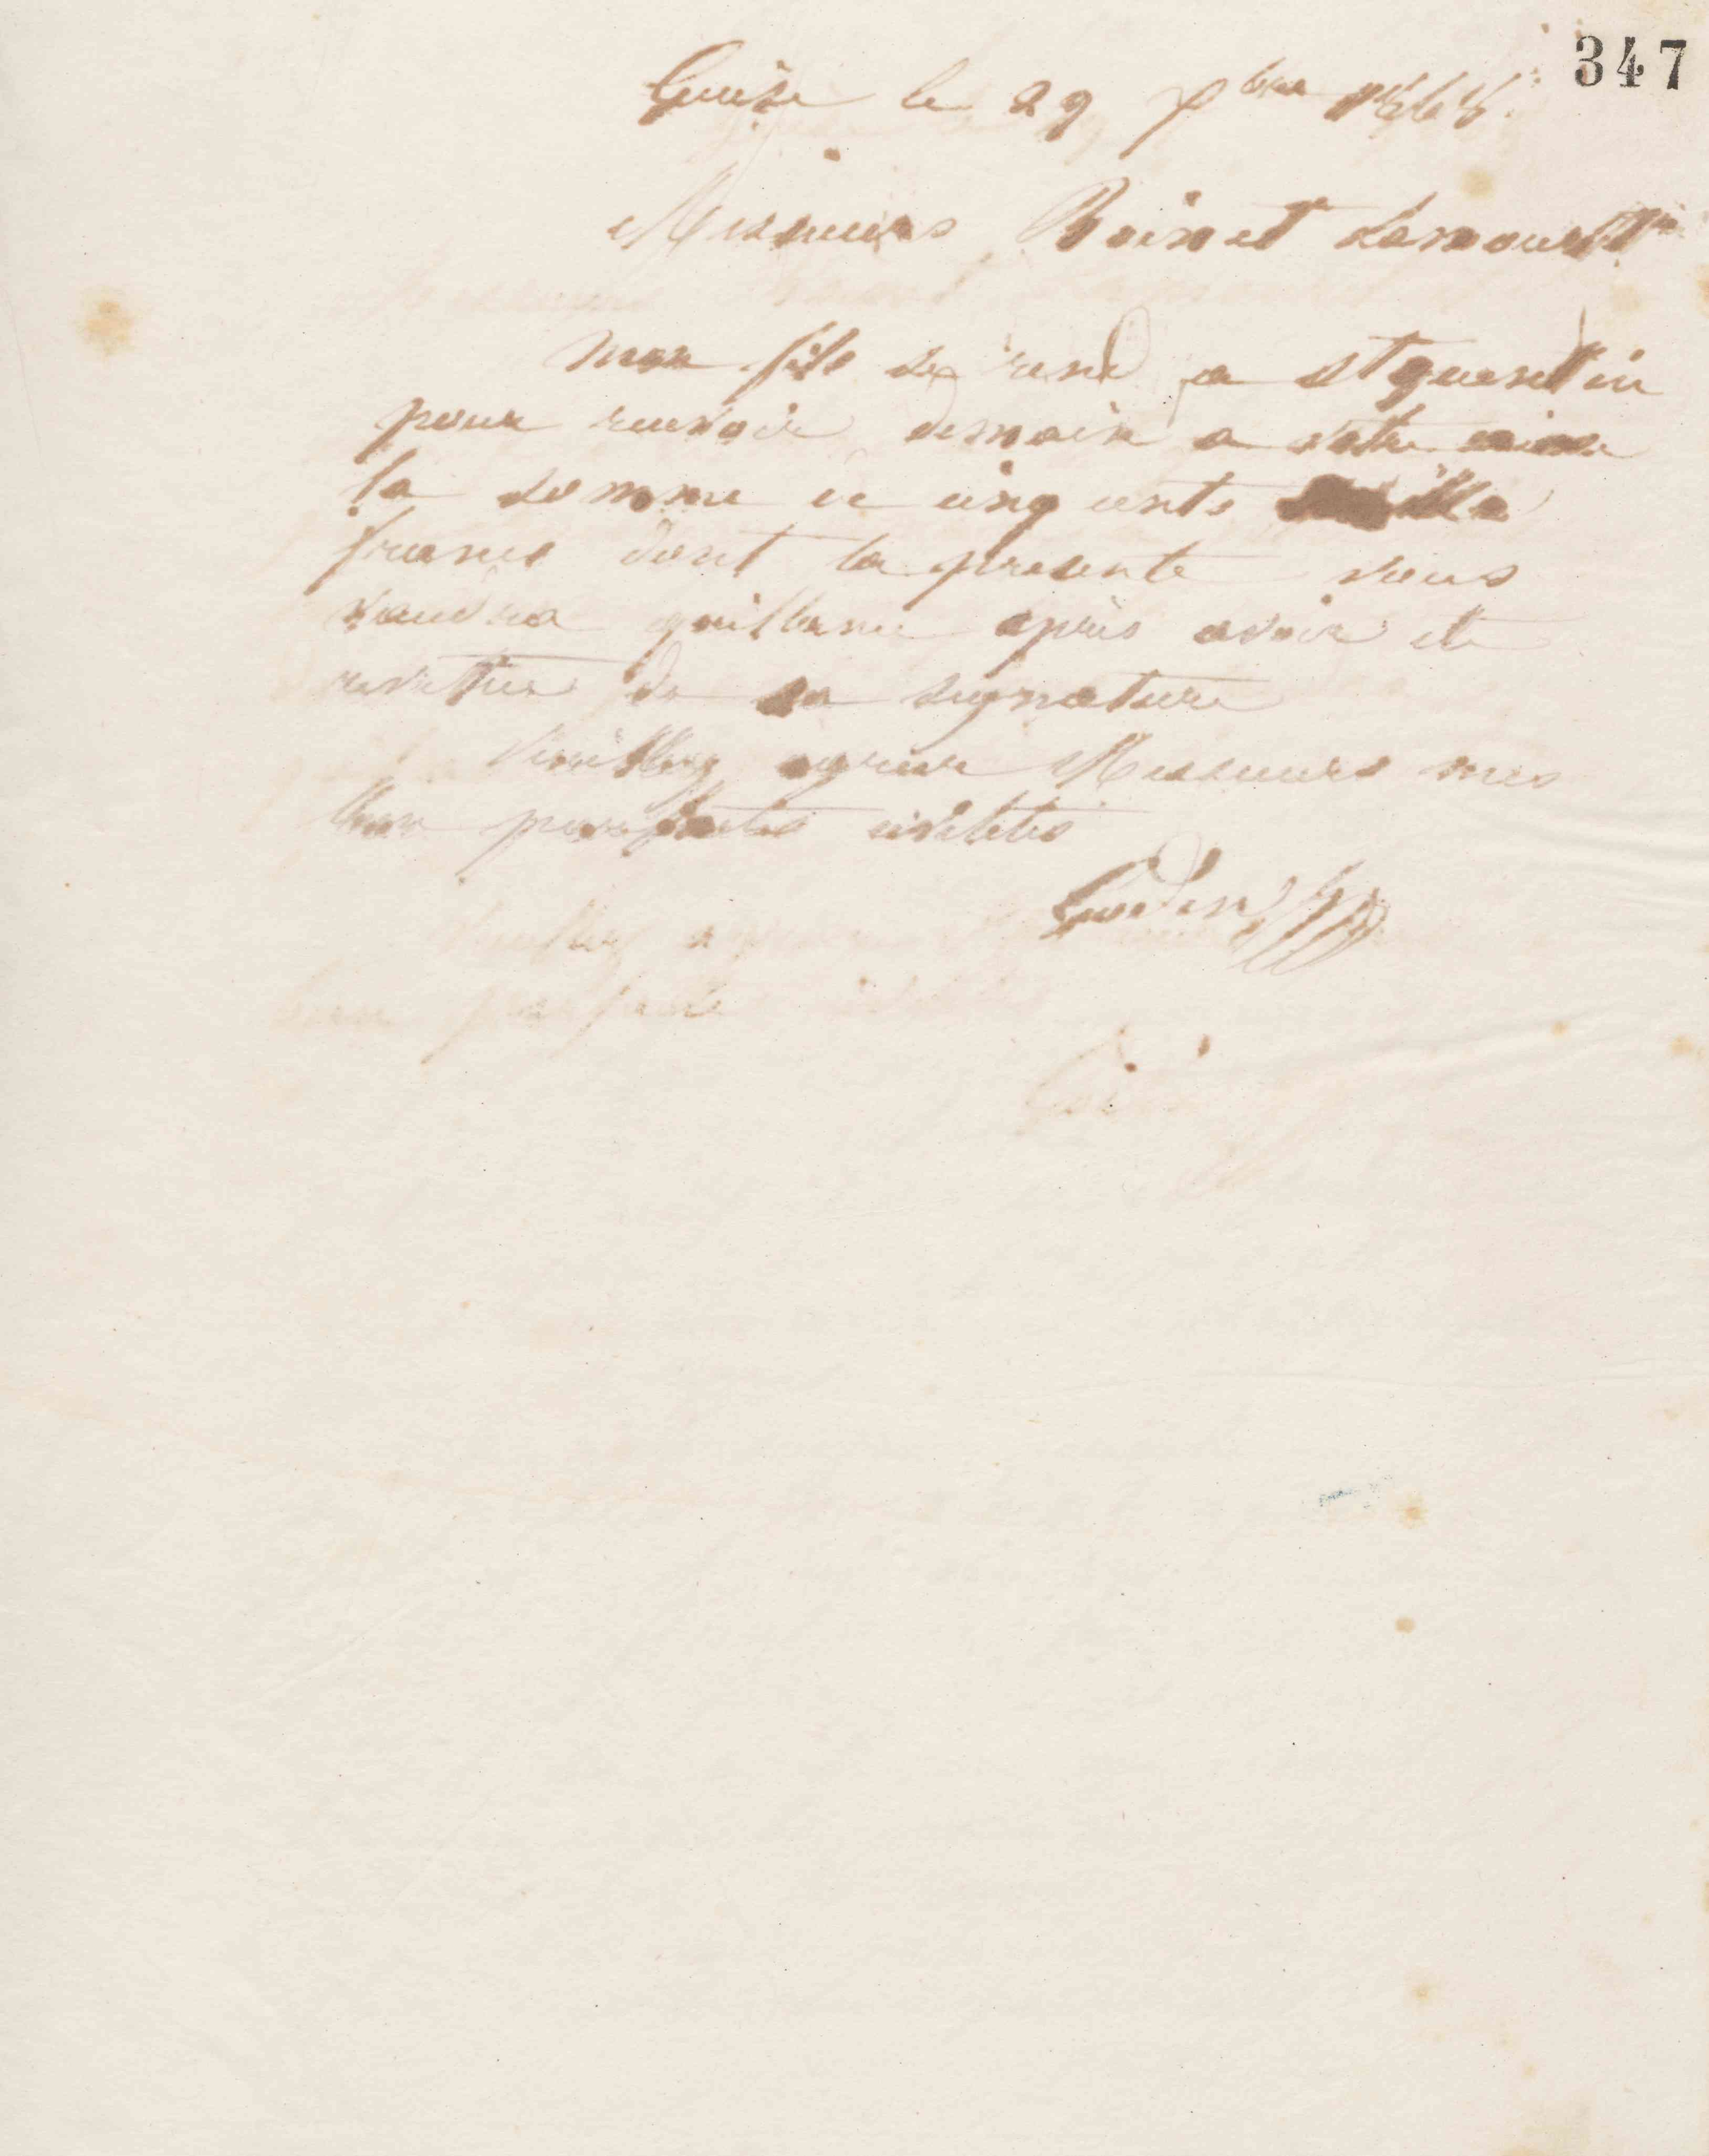 347
Guise le 29 xbre 1868
Messieurs Boinet Lamouret
mon fils se rend a St quentin
pour recevoir demain a votre caisse
la somme de cinq cents
francs dont la presente vous
vaudra quittance après avoir ete
revetue de sa signature
Veuillez agreer Messieurs mes
bien parfaites civilités
Godin